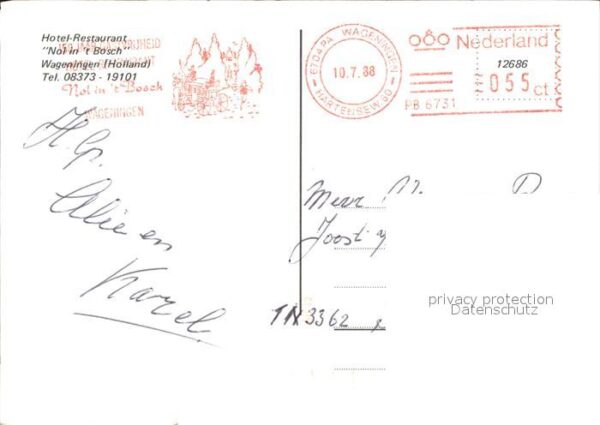 Hotel-Restaurant
"Nol in 't Bosch"
Wageningen (Holland)
Tel. 08373 - 19101
Nol in 't Bosch
WAGENINGEN
6704PA WAGENINGEN
10.7.88
HARTENSEW.60
Nederland
12686
055 ct
PB 6731
H. Gr.
Alie en
Karel.
Joost
3362
privacy protection
Datenschutz